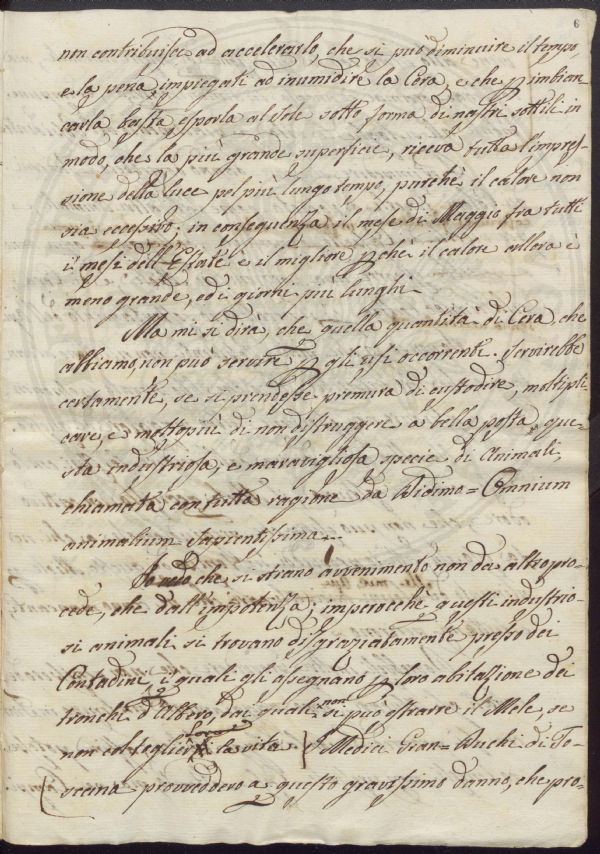 6
non contribuisce ad accelerarlo, che si può diminuire il tempo,
e la pena impiegati ad inumidire la Cera, e che p imbian
carla basta esporla al Sole sotto forma di nastri sottili in
modo, che la più grande superficie, riceva tutta l'impres-
sione della luce pel più lungo tempo, purchè il calore non
sia eccessivo; in conseguenza il mese di Maggio fra tutti
i mesi dell'Estate è il migliore pchè il calore allora è
meno grande, ed i giorni più lunghi.
Ma mi si dirà, che quella quantità di Cera, che
abbiamo, non può servire p gli usi occorrenti. Servirebbe
certamente, se si prendesse premura di custodire, moltipli
care, e molto più di non distruggere a bella posta que-
sta industriosa, e maravigliosa specie di Animali,
chiamata con tutta ragione da Didimo = Omnium
animalium Sapientissima
che si strano avvenimento non da altro pro-
cede, che dall'impotenza; imperocchè questi industrio-
si animali si trovano disgraziatamente presso dei
Contadini i quali gli assegnano p loro abitazione dei
tronchi d'Albero, dai quali non si può estrarre il Mele, se
non col togliere la vita. I Medici Gran = Duchi di To-
scana provvedero a questo gravissimo danno, che pro-